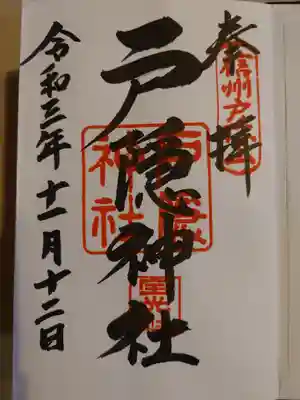 奉拝
信州戸
戸隠神社
戸隠
神社
令和三年十一月十二日